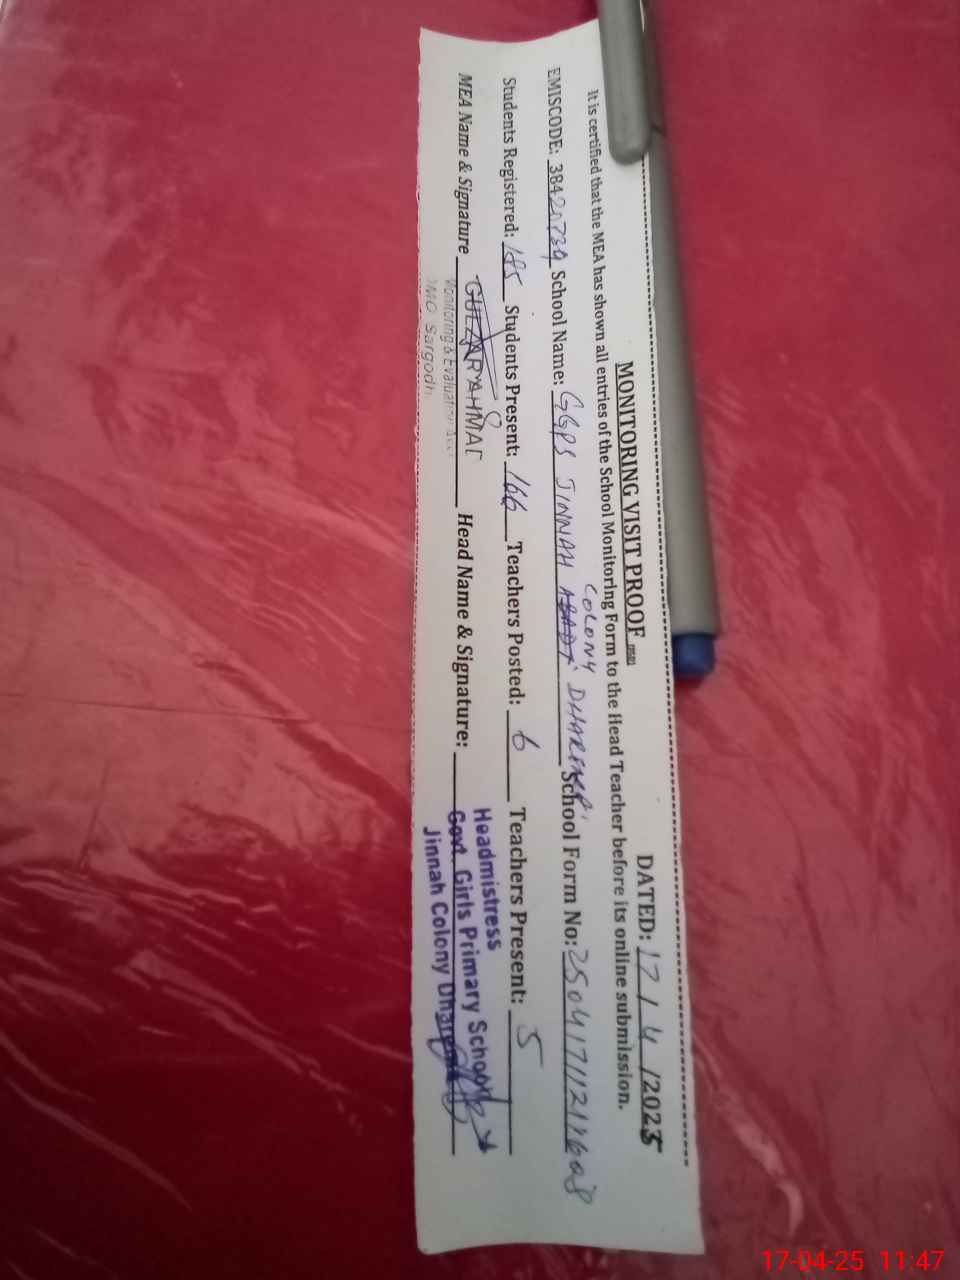 MONITORING VISIT PROOF DATED: 17/4/2025
It is certified that the MEA has shown all entries of the School Monitoring Form to the Head Teacher before its online submission.
COLONY
EMISCODE: 38420739 School Name: GGPS JINNAH ABADI DHAREMA. School Form No:
Students Registered: 185 Students Present: 166 Teachers Posted: 6 Teachers Present: 5
MEA Name & Signature GULZAR AHMAD Head Name & Signature:
Monitoring & Evaluation
DMO Sargodh
Headmistress
Govt. Girls Primary School
Jinnah Colony
17-04-25 11:47